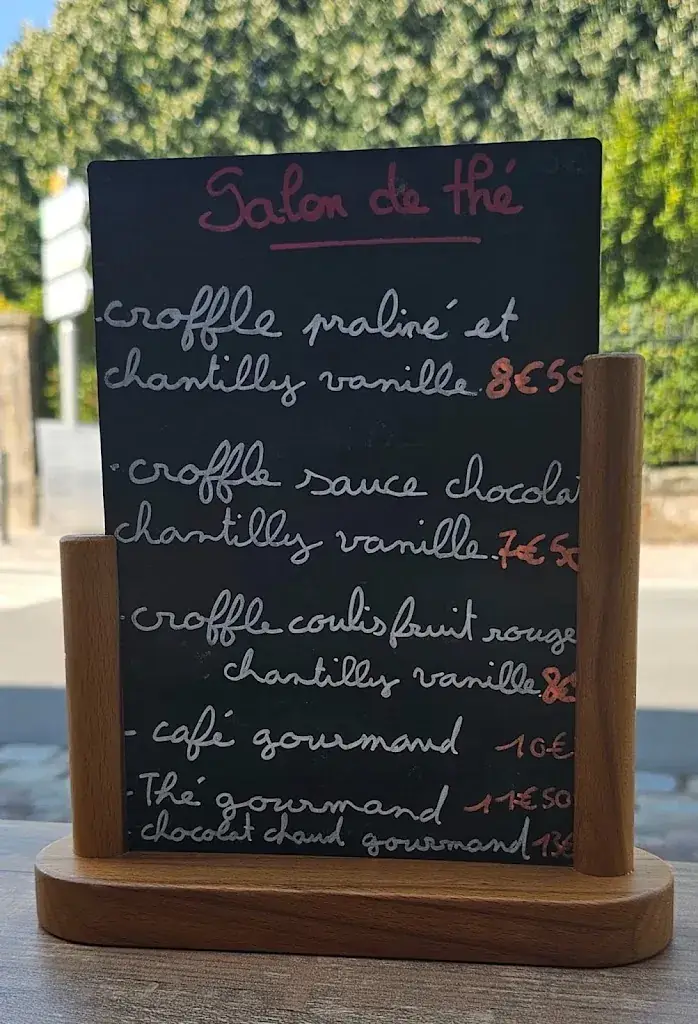 Salon de thé
-croffle praliné et
chantilly vanille 8€50
-croffle sauce chocolat
chantilly vanille 7€50
-croffle coulis fruit rouge
chantilly vanille 8€
- café gourmand 10€
- Thé gourmand 11€50
- chocolat chaud gourmand 13€